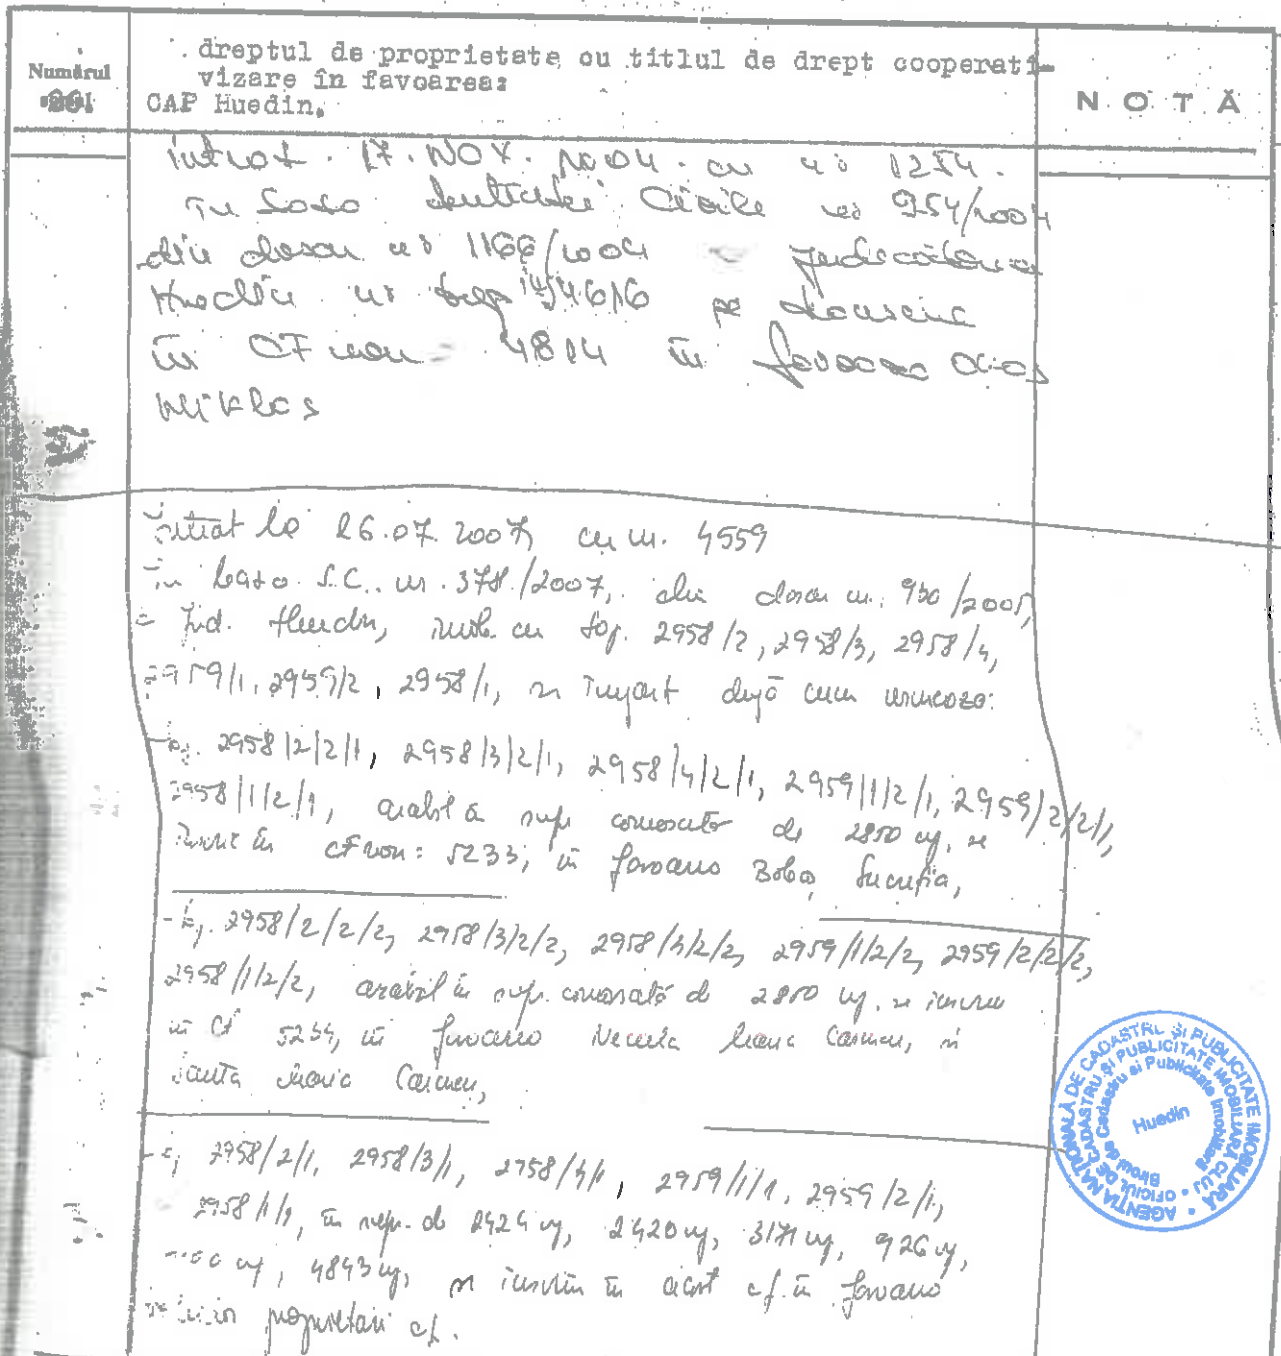 Numărul
dreptul de proprietate cu titlul de drept cooperati-
vizare în favoarea:
CAP Huedin.
N O T Ă
intrat. 17. NOV. 2004. cu nr 1254.
În baza Civile nr 954/2004
din dosar nr 1166/2004 Judecătoria
Huedin nr top 4616 pe
în CF nou = 4814 în favoarea
Miklos
Intrat la 26.07.2007 cu nr. 4559
În baza S.C. nr. 378/2007, din dosar nr. 930/2005,
= Jud. Huedin, imob cu top. 2958/2, 2958/3, 2958/4,
2959/1, 2959/2, 2958/1, se împart după cum urmează:
2958/2/2/1, 2958/3/2/1, 2958/4/2/1, 2959/1/2/1, 2959/2/2/1,
2958/1/2/1, arabil în supr comasată de 2850 mp, se
înscrie în CF nou: 5233, în favoarea Boboș Lucreția,
2958/2/2/2, 2958/3/2/2, 2958/4/2/2, 2959/1/2/2, 2959/2/2/2,
2958/1/2/2, arabil în supr. comasată de 2850 mp. se înscrie
în CF 5234, în favoarea Necula Ioana Carmen, și
Maria Carmen,
2958/2/1, 2958/3/1, 2958/4/1, 2959/1/1, 2959/2/1,
2958/1/1, în supr. de 2424 mp, 2420 mp, 3171 mp, 926 mp,
mp, 4843 mp, se înscriu în acest cf. în favoarea
proprietari cf.
AGENȚIA NAȚIONALĂ DE CADASTRU ȘI PUBLICITATE IMOBILIARĂ
OFICIUL DE CADASTRU ȘI PUBLICITATE IMOBILIARĂ CLUJ
Biroul de Cadastru și Publicitate Imobiliară
Huedin